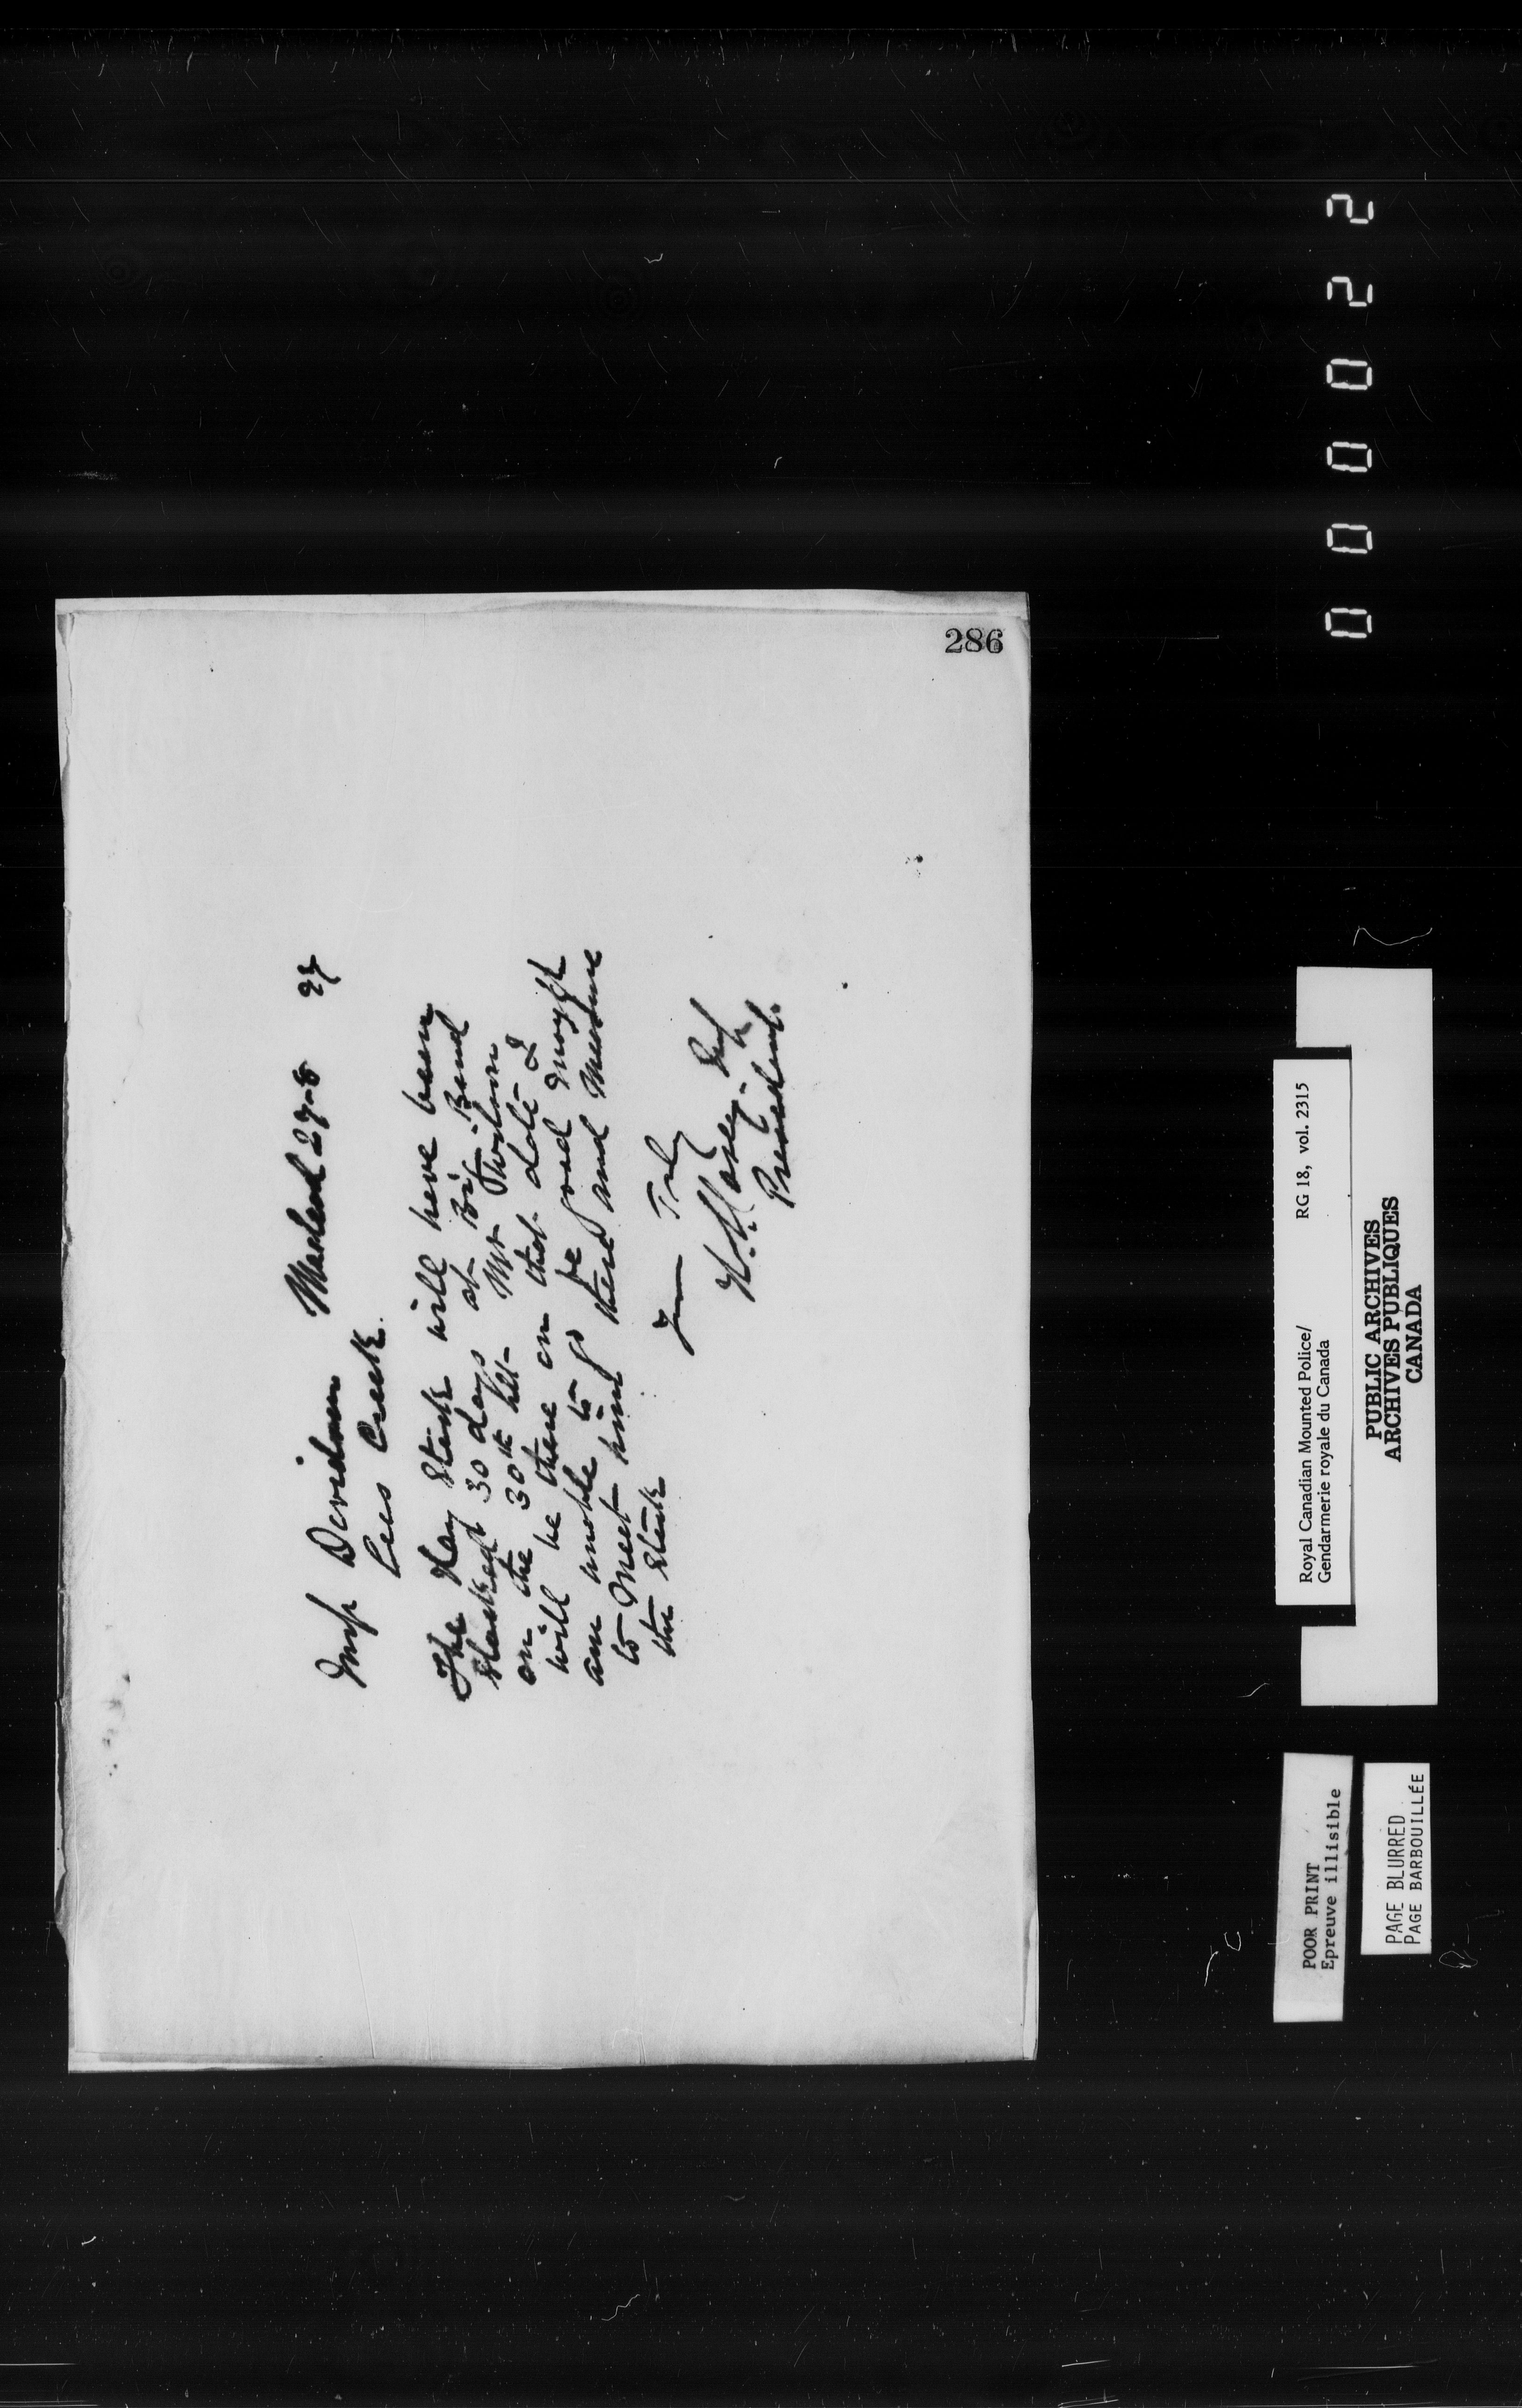 286
Macleod 27-8 97
Insp Davidson
Lees Creek
The Hay Stack will have been
Stacked 30 days at Big-Bend
on the 30th Mr
will be there on that date I
am unable to go be good enough
to Meet him there and Measure
the Stack
Yours Truly
President.
000022
Royal Canadian Mounted Police/ RG 18, vol. 2315
Gendarmerie royale du Canada
PUBLIC ARCHIVES
ARCHIVES PUBLIQUES
CANADA
POOR PRINT
Epreuve illisible
PAGE BLURRED
PAGE BARBOUILLÉE